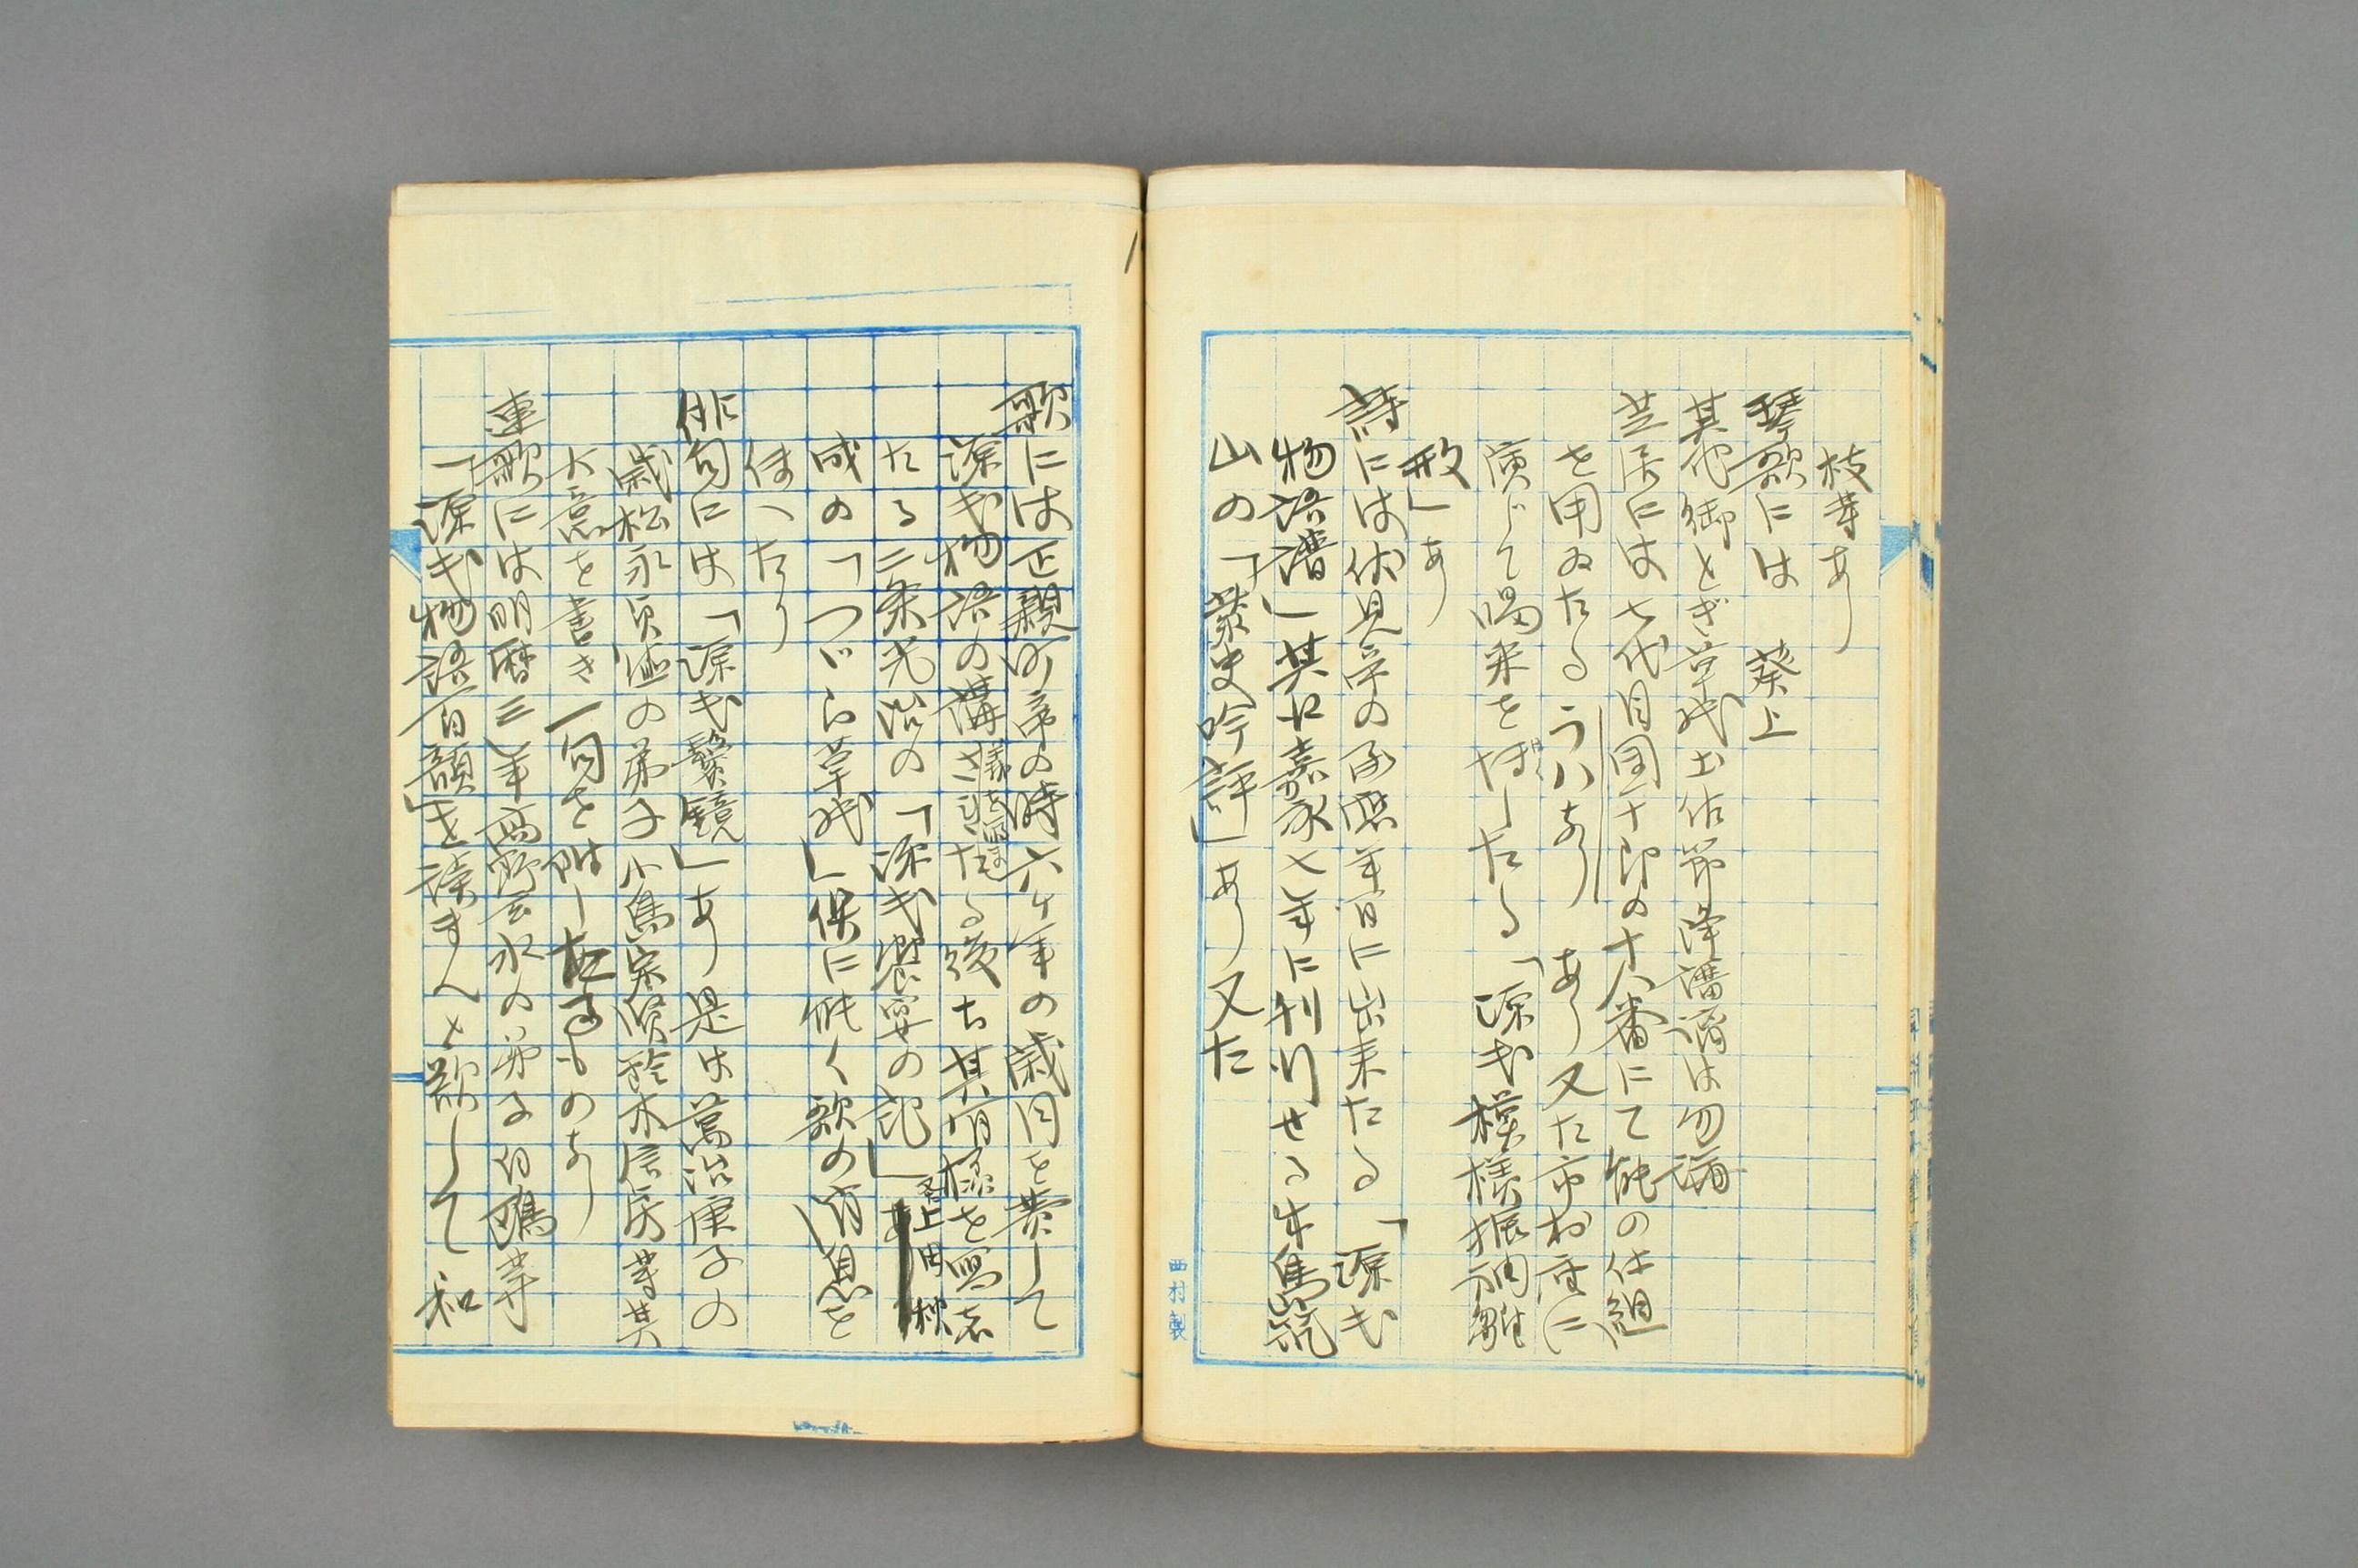 枝等あり
琴歌には 葵上
其他御とぎ草紙土佐節浄瑠璃は勿論
芝居には七代目団十郎の十八番にて能の仕組
を用ゐたるうはなりあり又た市村座に
演じて喝采を博したる「源氏模様振袖雛
形」あり
詩には伏見帝の永暦年百に出来たる「源氏
物語譜」其た嘉永七年に刊行せる牛島筑
山の「紫史吟評」あり又た
西村製
歌には正親町帝の時六ケ年の歳月を費して
源氏物語の講義を聴 たる後ち其 を
たる二条光治の「源氏 宴の記」あり
又上田秋
成の「つゞら草紙」倶に能く歌の情思を
伝へたり
俳句には「源氏鬢鏡」あり是は万治庚子の
歳松永貞徳の弟子小島宗賢鈴木信房等其
大意を書き一句を附したるものあり
連歌には明暦三年高野 水の弟子白鴎等
「源氏物語百韻」を読まんと欲して和